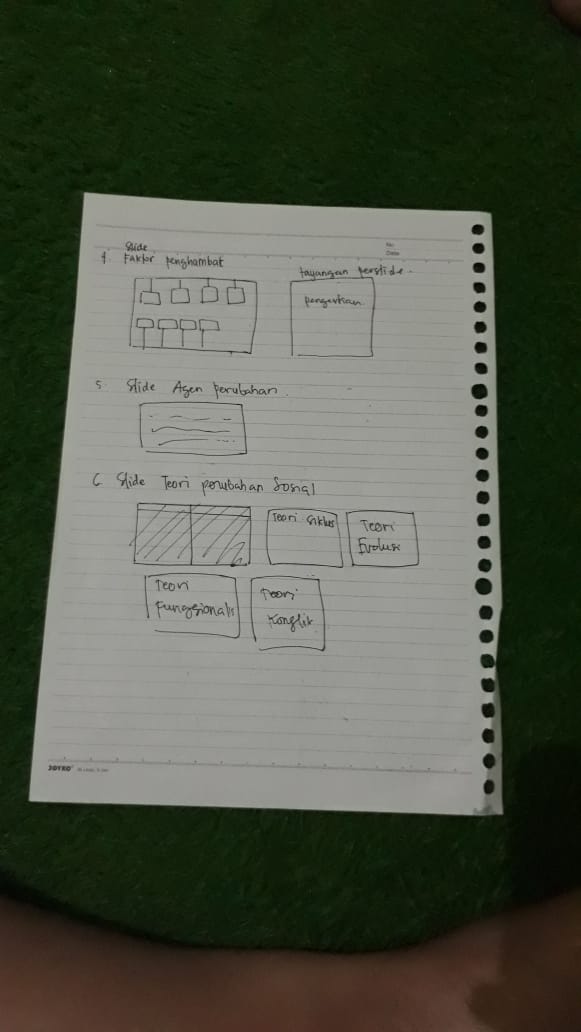 No
Date
Slide
4. Faktor penghambat
tayangan perslide.
pengertian
5. Slide Agen perubahan.
6 Slide Teori perubahan Sosial
Teori Siklus
Teori
Evolusi
Teori
Fungsionalis
Teori
Konflik
JOYKO